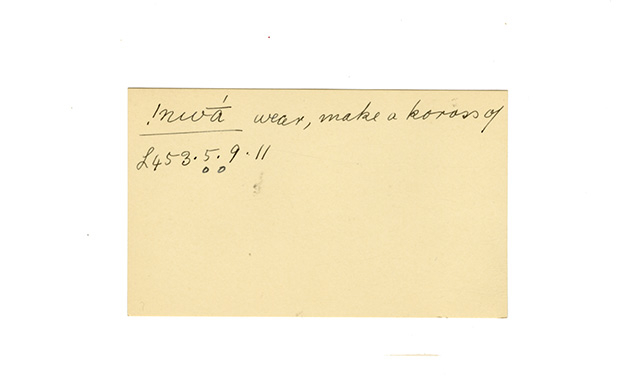 !nwā́ wear, make a kaross of
L453.5.9.11
o o